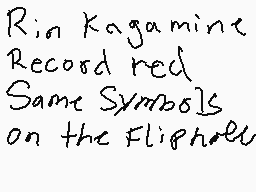 Rin Kagamine
Record red
Same Symbols
on the Fliphole